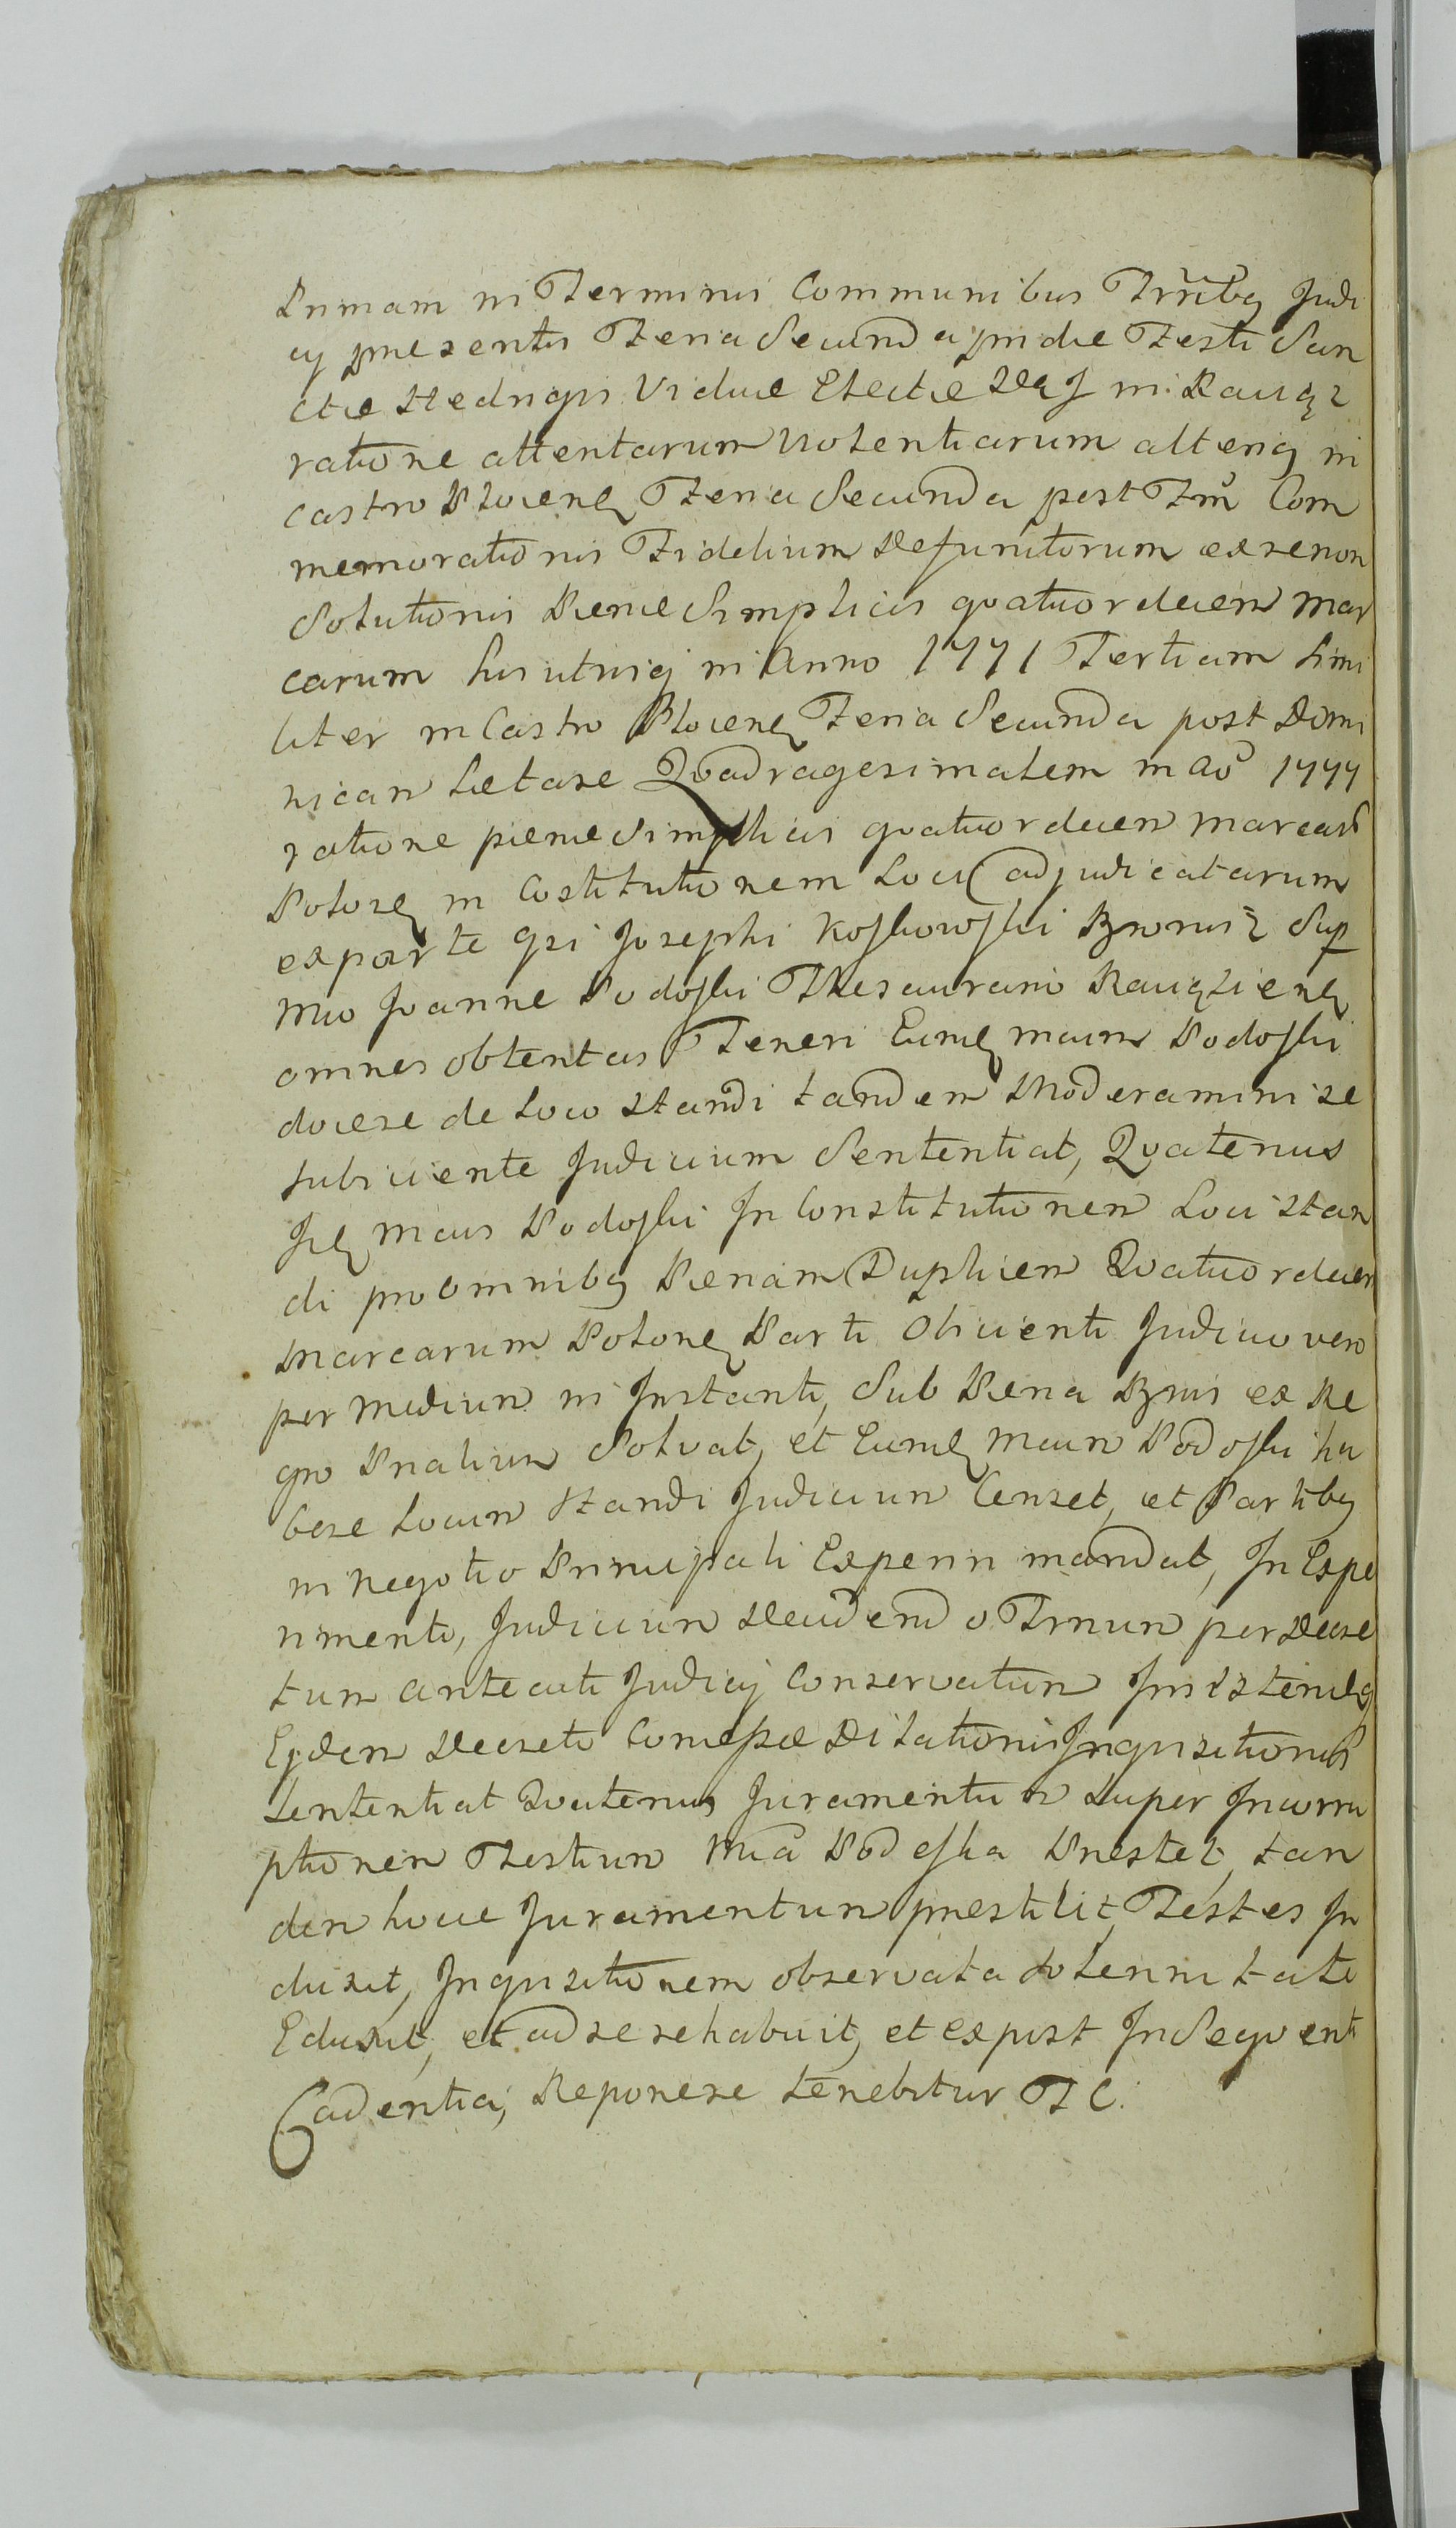 Primam in Terminis Communibus Trribq Judi
cy presentis Feria Secunda pridie Festi San
ctæ Hedvigis Viduæ Electæ in Raciąż
ratione attentarum violentiarum alteriq in
Castro Plocenq Feria Secunda post Ftm Com
memorationis Fidelium Defunctorum ex re non
Solutionis Pænæ Simplicis quatuordecem mar
carum his utriq in Anno 1771 Tertiam Simi
liter in Castro Plocenq Feria Secunda post Domi
nicam Lætare Quadragesimalem in Ao 1777
ratione pænæ Simplicis quatuordecem marcarū
Polonq in Costitutionem Loci adjudicatarum
ex parte Gsi Josephi Kosskowski Sup
Mco Joanne Podoski Thesaurario Raciążienq
omnes obtentas Teneri Eundq Mcum Podoski
docere de Loco standi tandem Moderamini se
subiiciente Judicium Sententiat, Quatenus
Idq Mcus Podoski In Constitutionem Loci stan
di pro omnibq Pænam Duplicem Quatuordecem
Marcarum Polonq Parti Obiicienti Judicio vero
per medium in Instanti, Sub Pæna Bznis ex Re
gno Pnalium Solvat, et Eundq Mcum Podoski ha
bere Locum standi Judicium Censet, et Partibq
in negotio Principali Experiri mandat, In Expe
rimento, Judicium Decidendo Trnum per Decre
tum antecati Judicij Conservatum Insistendoq
Ejdem Decreto Concessæ Dilationis Inquisitionis
Sententiat Quatenus Juramentum Super Incorru
ptionem Testium Mca Podoska Præstet, tan
dem hocce Juramentum præstitit, Testes In
duxit, Inquisitionem observata solennitate
Eduxit, et ad se rehabuit, et expost In Sequenti
Cadentia, Reponere tenebitur T C.